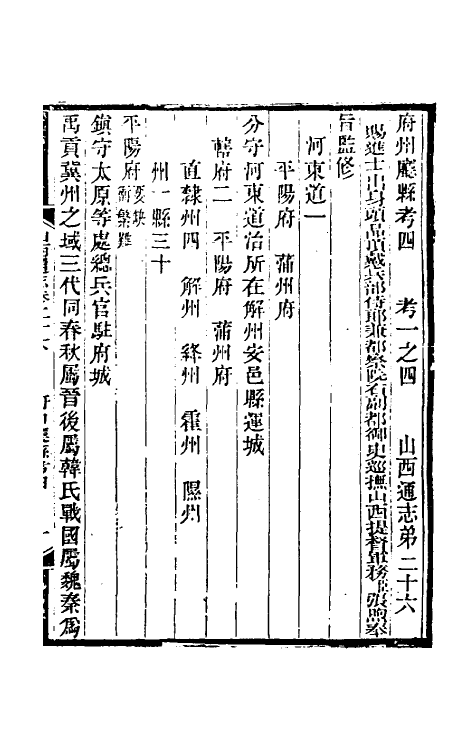 府州廳縣考四 考一之四 山西通志第二十六
賜進士出身頭品頂戴兵部侍郎兼都察院右副都御史巡撫山西提督軍務臣張煦奉
旨監修
河東道一
平陽府 蒲州府
分守河東道治所在解州安邑縣運城
轄府二 平陽府 蒲州府
直隸州四 解州 絳州 霍州 隰州
州一縣三十
平陽府 要缺衝繁難
鎮守太原等處總兵官駐府城
禹貢冀州之域三代同春秋屬晉後屬韓氏戰國屬魏秦爲